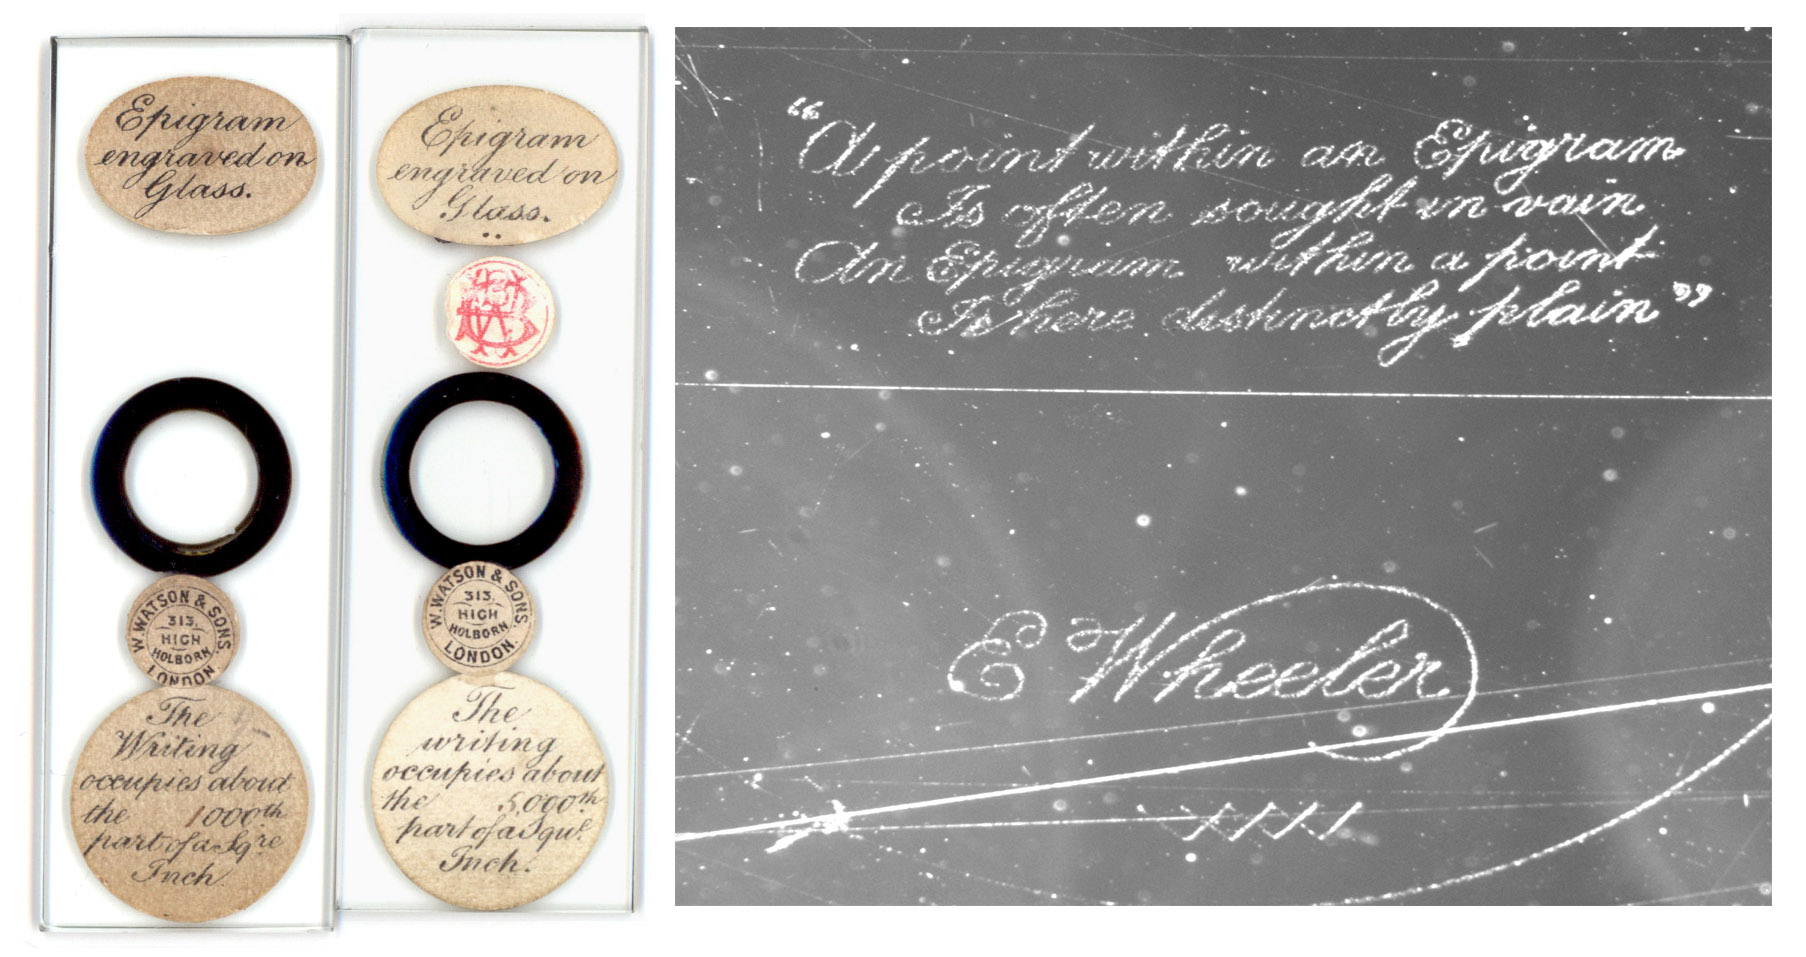 Epigram
engraved on
Glass.
W. WATSON & SONS.
313,
HIGH
HOLBORN
LONDON
The
Writing
occupies about
the 1000th
part of a Sqre
Inch.
Epigram
engraved on
Glass.
W. WATSON & SONS.
313,
HIGH
HOLBORN
LONDON.
The
writing
occupies about
the 5,000th
part of a Sqre
Inch.
"A point within an Epigram
Is often sought in vain
An Epigram within a point
Is here distinctly plain"
E Wheeler